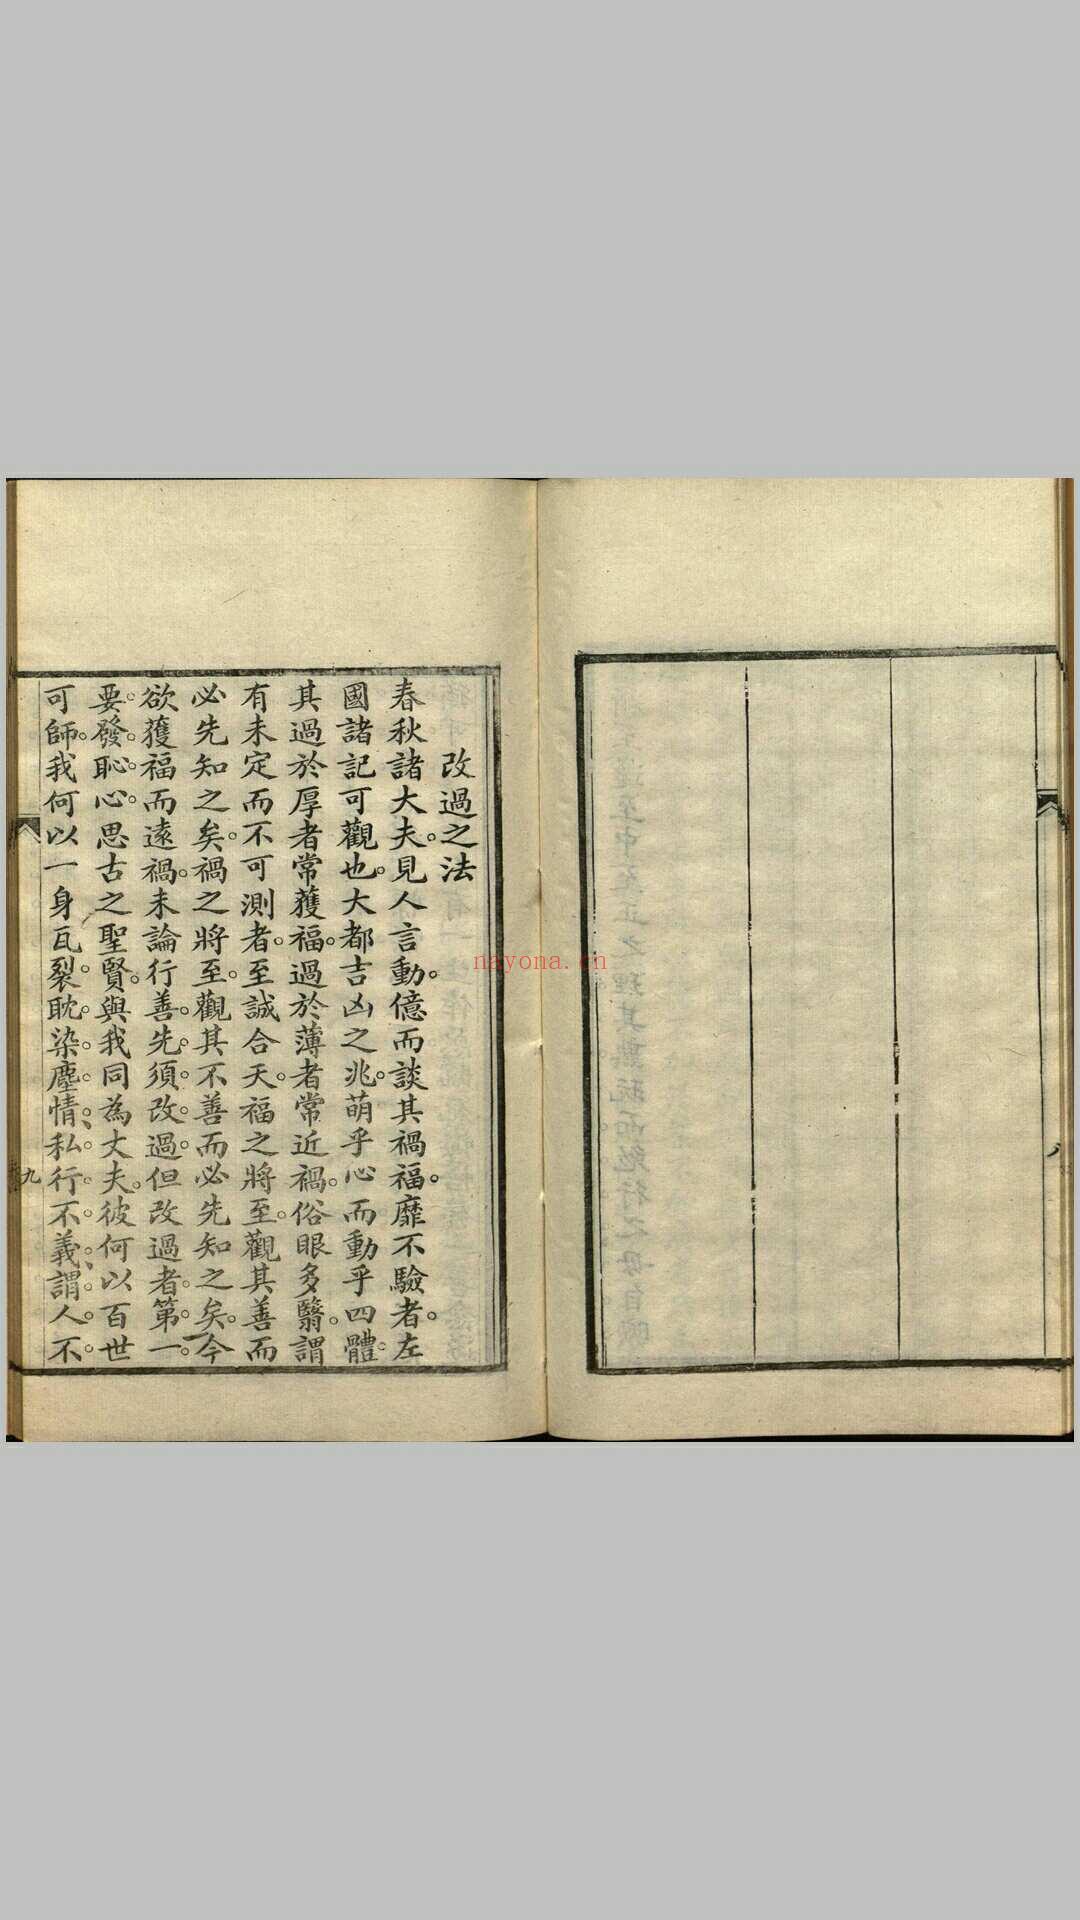 八
改過之法
春秋諸大夫。見人言動。億而談其禍福。靡不驗者。左
國諸記可觀也。大都吉凶之兆。萌乎心而動乎四體。
其過於厚者常獲福。過於薄者常近禍。俗眼多翳。謂
有未定而不可測者。至誠合天。福之將至。觀其善而
必先知之矣。禍之將至。觀其不善而必先知之矣。今
欲獲福而遠禍。未論行善。先須改過。但改過者。第一。
要。發。恥。心。思古之聖賢。與我同為丈夫。彼何以百世
可師。我何以一身瓦裂。耽。染。塵。情、私。行。不。義、謂、人。不。
九
nayona.cn